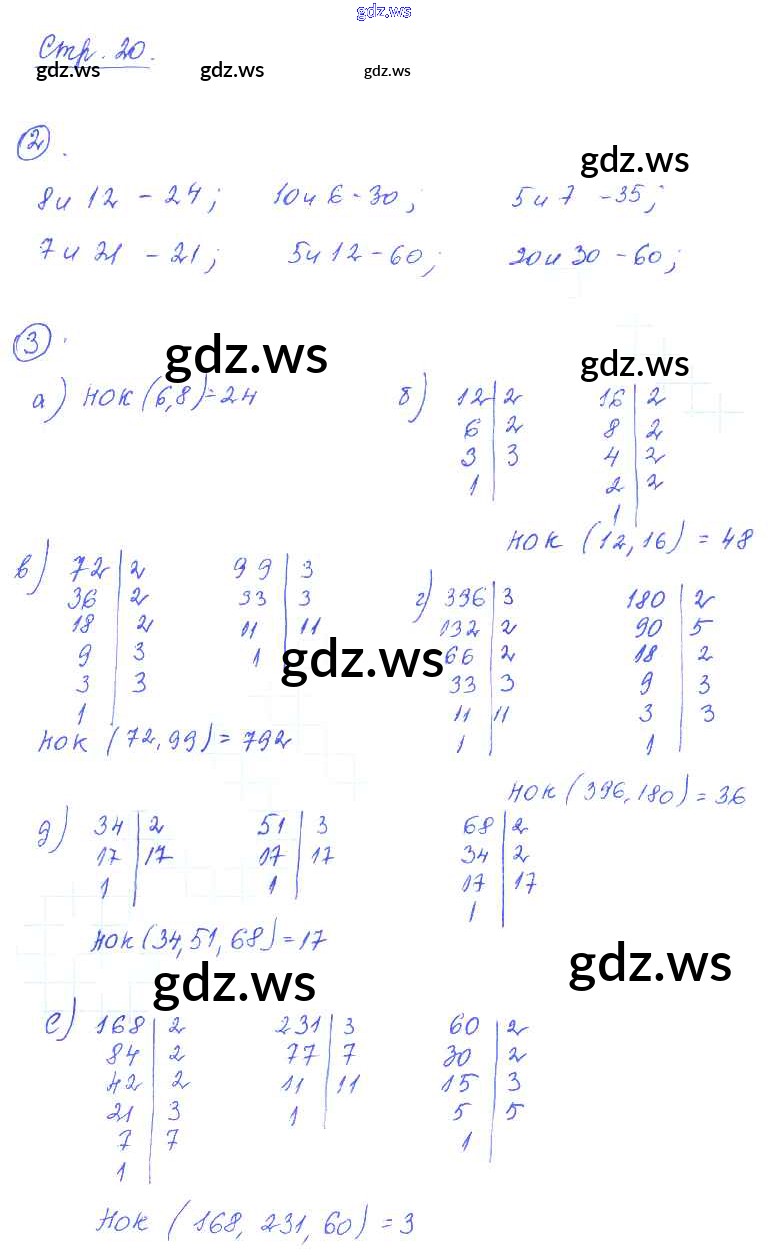 gdz.ws
Стр. 20.
gdz.ws gdz.ws gdz.ws
2.
gdz.ws
8 и 12 - 24; 10 и 6 - 30; 5 и 7 - 35;
7 и 21 - 21; 5 и 12 - 60; 20 и 30 - 60;
3.
gdz.ws gdz.ws
а) НОК (6,8) = 24 б) 12 | 2 16 | 2
6 | 2 8 | 2
3 | 3 4 | 2
1 | 2 | 2
1 |
НОК (12, 16) = 48
в) 72 | 2 99 | 3
36 | 2 33 | 3 г) 396 | 3 180 | 2
18 | 2 11 | 11 132 | 2 90 | 5
9 | 3 1 | gdz.ws 66 | 2 18 | 2
3 | 3 33 | 3 9 | 3
1 | 11 | 11 3 | 3
НОК (72, 99) = 792 1 | 1 |
НОК (396, 180) = 36
д) 34 | 2 51 | 3 68 | 2
17 | 17 17 | 17 34 | 2
1 | 1 | 17 | 17
1 |
НОК (34, 51, 68) = 17
gdz.ws gdz.ws
е) 168 | 2 231 | 3 60 | 2
84 | 2 77 | 7 30 | 2
42 | 2 11 | 11 15 | 3
21 | 3 1 | 5 | 5
7 | 7 1 |
1 |
НОК (168, 231, 60) = 3